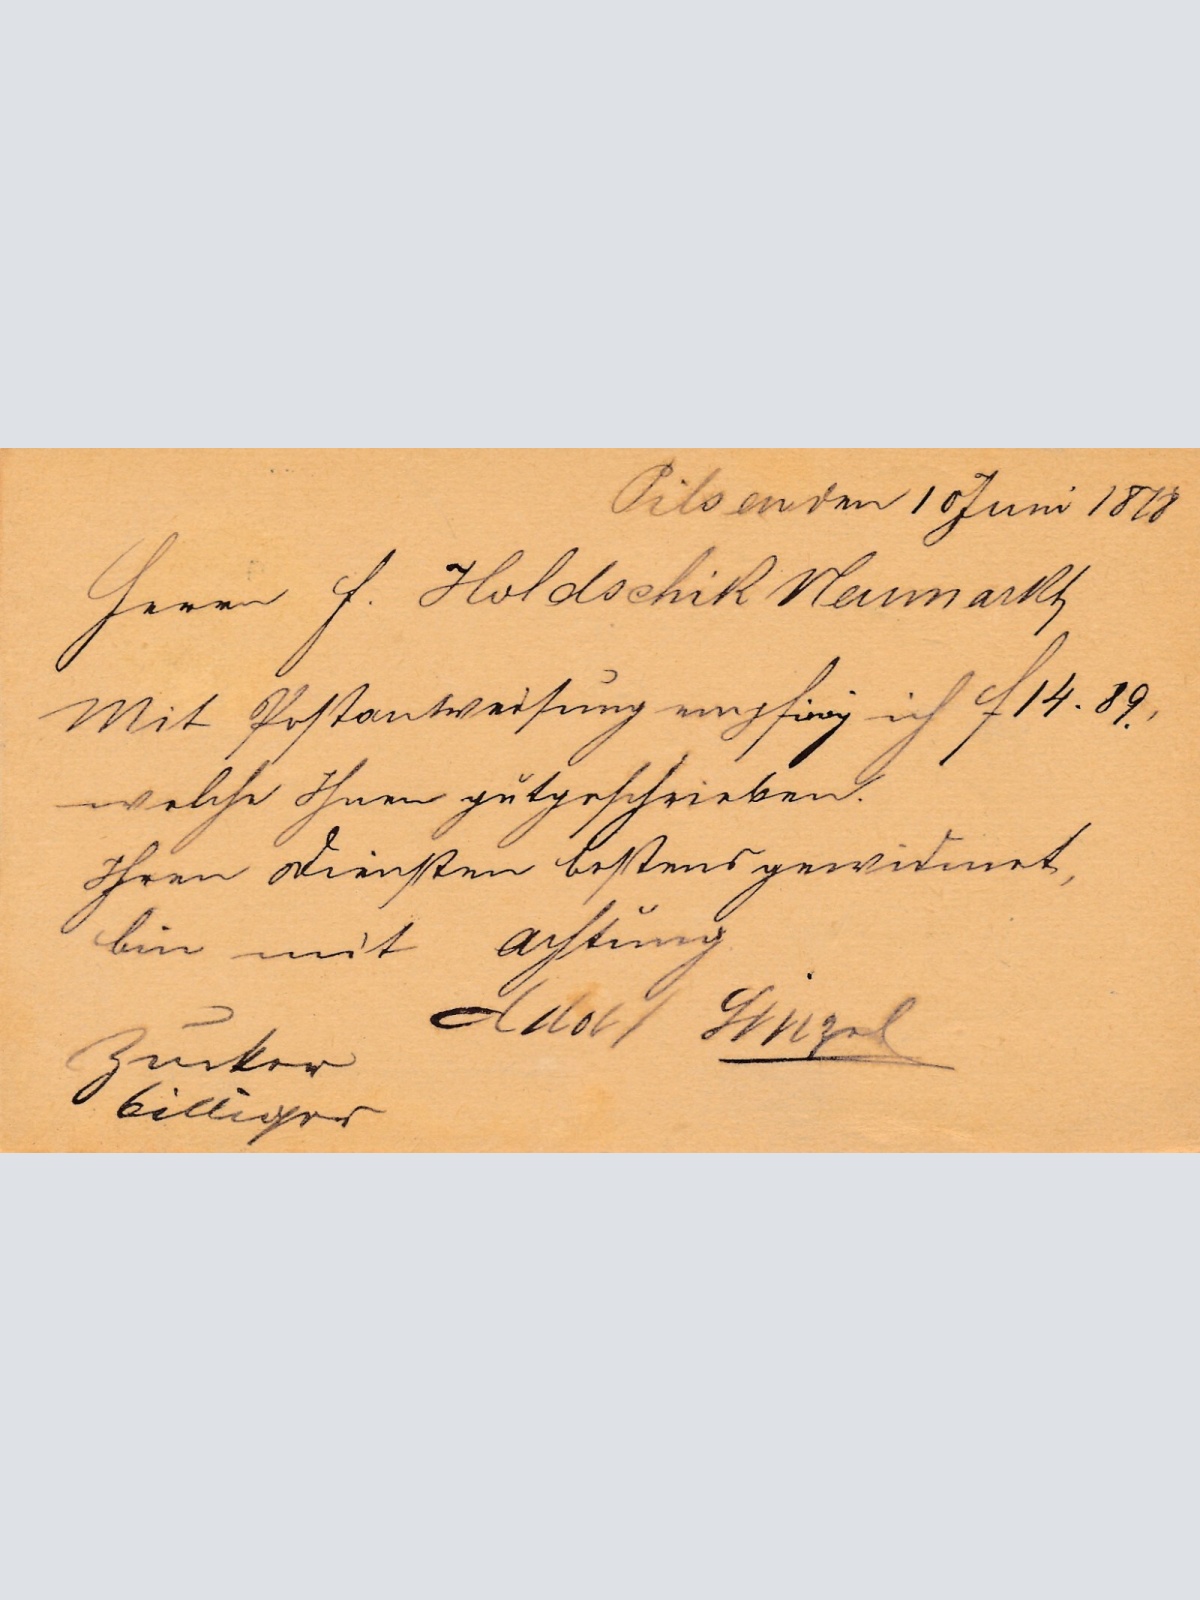 Pilsen den 10 Juni 1878
Herrn F. Holdschik Neumarkt
Mit Postanweisung empfing ich f 14. 89.,
welche Ihnen gutgeschrieben.
Ihren Diensten bestens gewidmet,
bin mit Achtung
Adolf
Zucker
billiger